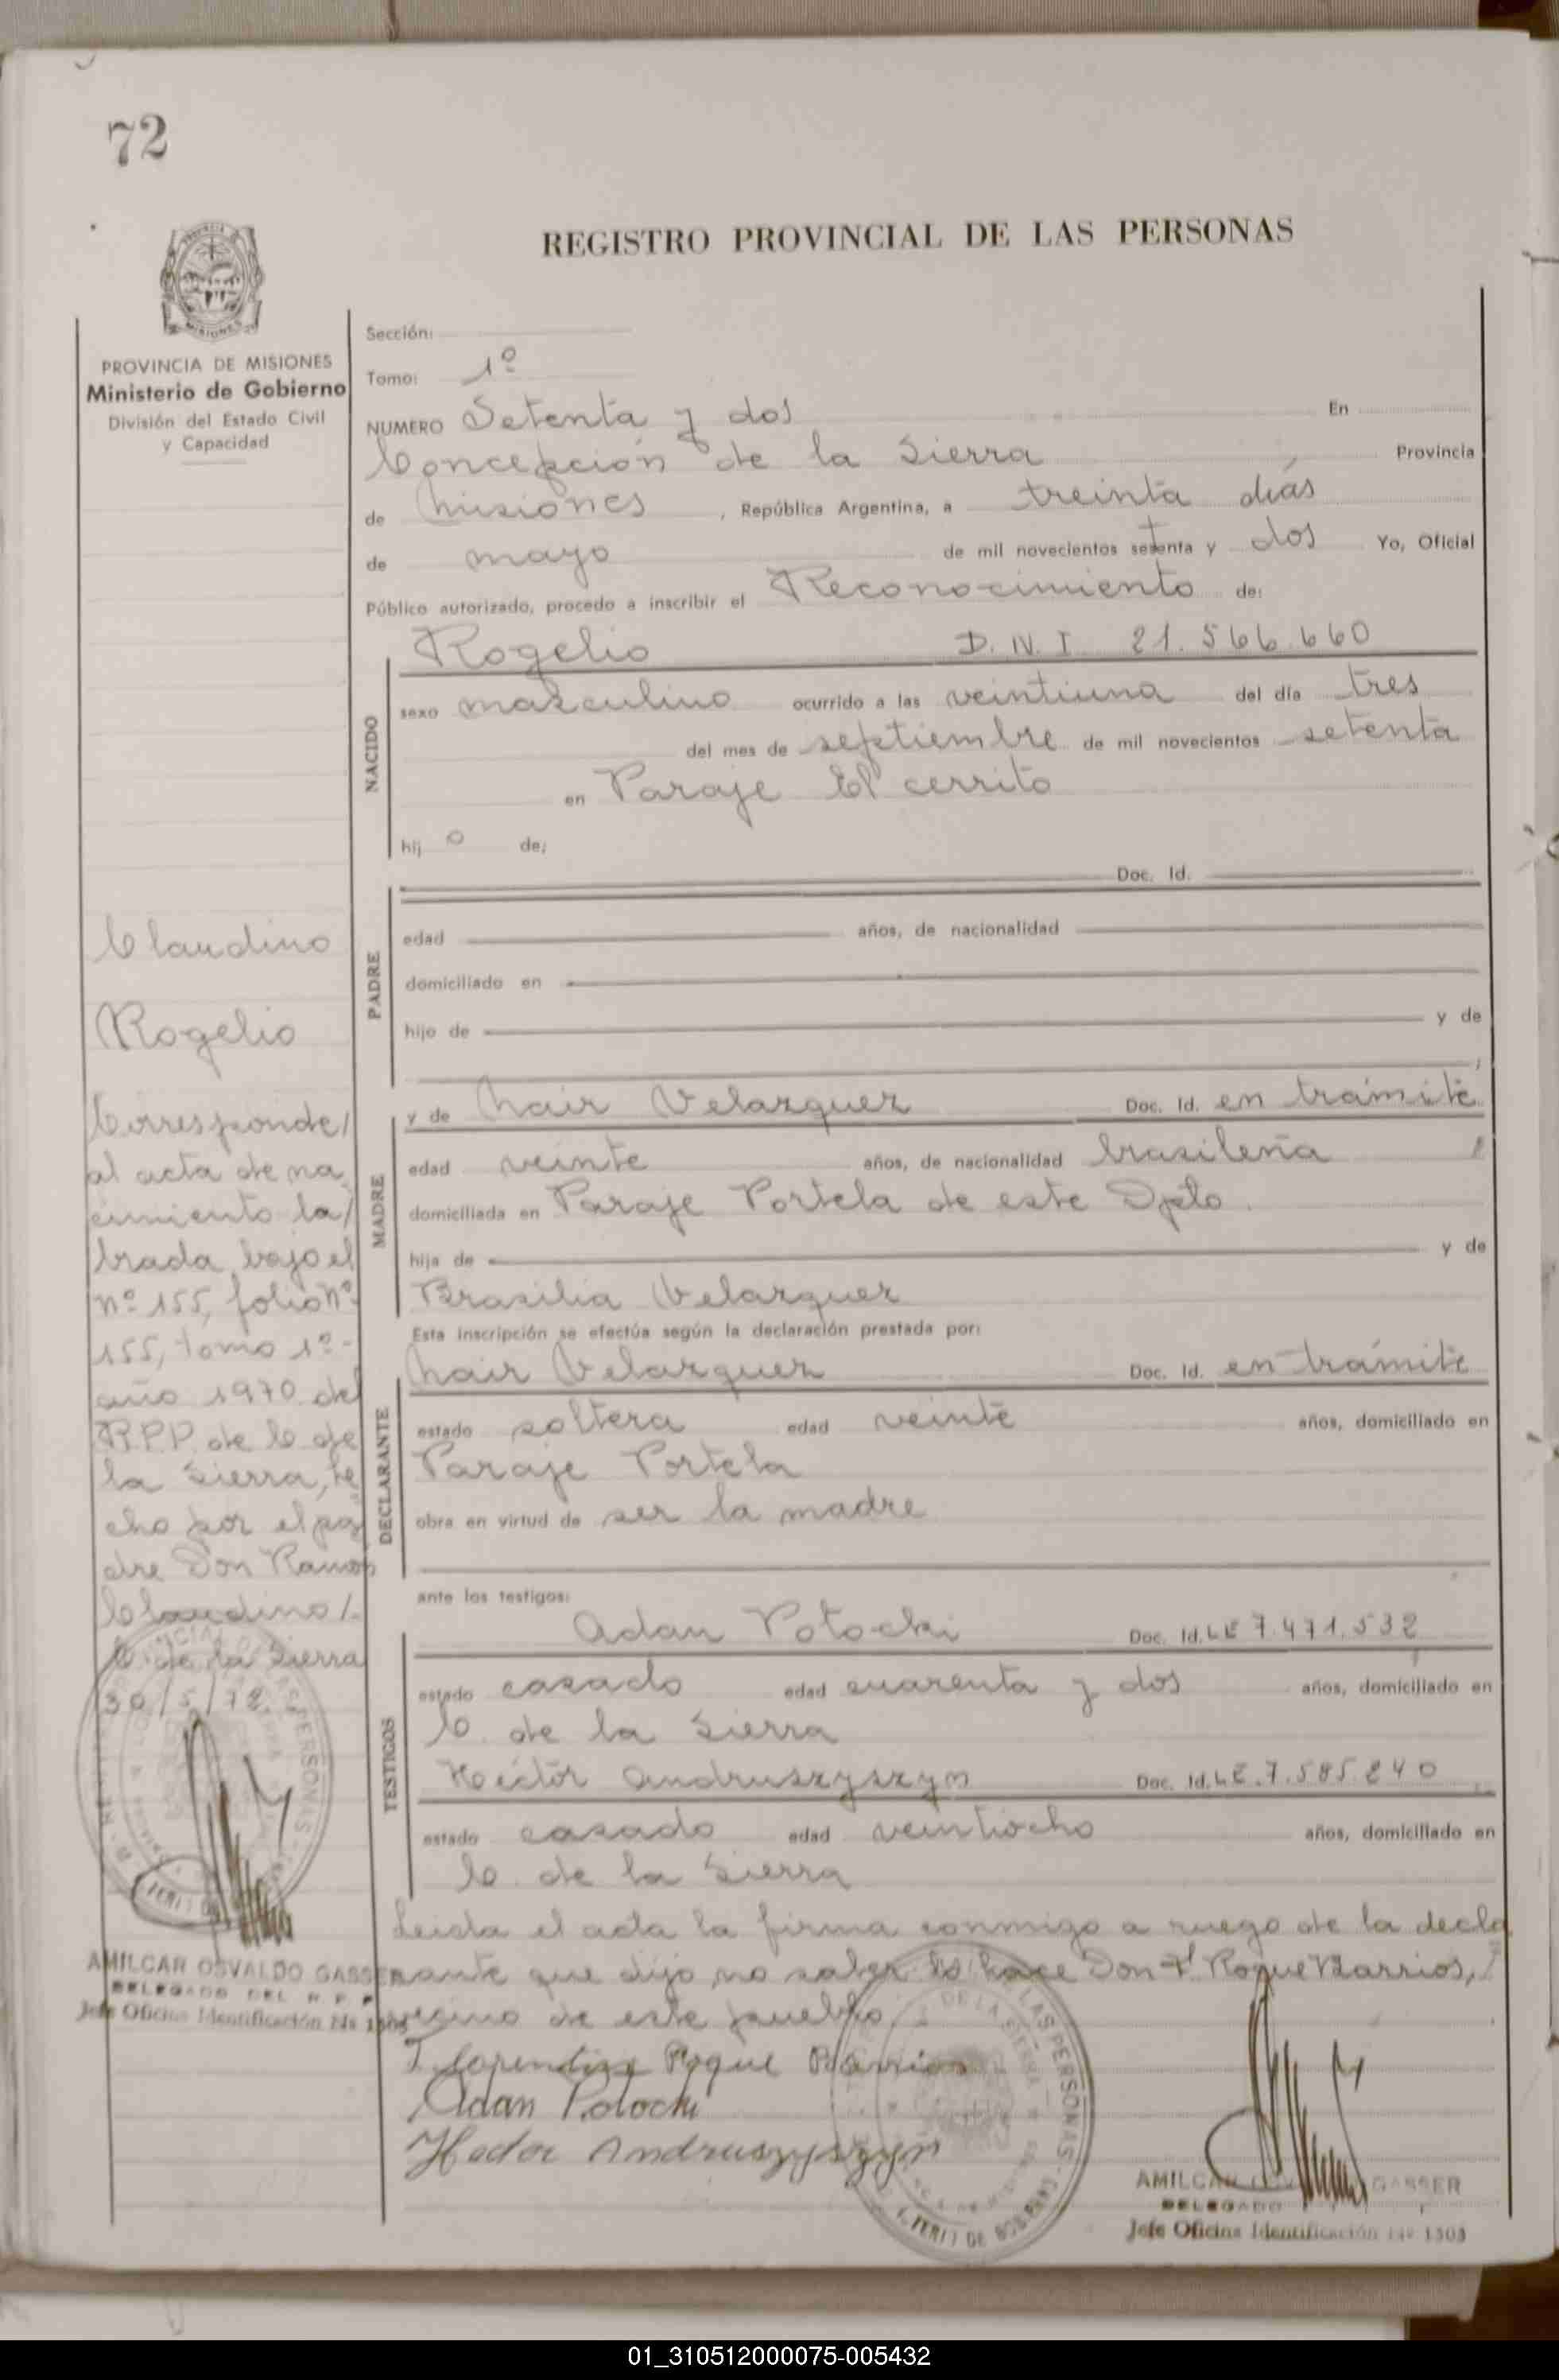 72
REGISTRO PROVINCIAL DE LAS PERSONAS
PROVINCIA DE MISIONES
Ministerio de Gobierno
División del Estado Civil
y Capacidad
Sección:
Tomo: 1º
NUMERO Setenta y dos En
Concepción de la Sierra Provincia
de Misiones, República Argentina, a treinta días
de mayo de mil novecientos setenta y dos Yo, Oficial
Público autorizado, procedo a inscribir el Reconocimiento de:
Rogelio D.N.I 21.566.660
NACIDO
sexo masculino ocurrido a las veintiuna del día tres
del mes de septiembre de mil novecientos setenta
en Paraje El cerrito
hij o de:
PADRE
Doc. Id.
edad años, de nacionalidad
domiciliado en
hijo de y de
MADRE
y de Nair Velazquez Doc. Id. en trámite
edad veinte años, de nacionalidad brasileña
domiciliada en Paraje Portela de este Dpto.
hija de y de
Brasilia Velazquez
Esta inscripción se efectúa según la declaración prestada por:
DECLARANTE
Nair Velazquez Doc. Id. en trámite
estado soltera edad veinte años, domiciliado en
Paraje Portela
obra en virtud de ser la madre
ante los testigos:
TESTIGOS
Adan Potocki Doc. Id. LE 7.471.532
estado casado edad cuarenta y dos años, domiciliado en
C. de la Sierra
Hector Andruszyszyn Doc. Id. LE.7.585.240
estado casado edad veintiocho años, domiciliado en
C. de la Sierra
Leida el acta la firma conmigo a ruego de la decla
rante que dijo no saber lo hace Don Fl. Roque Barrios,
vecino de este pueblo
Florentino Roque Barrios
Adan Potocki
Hector Andruszyszyn
AMILCAR GASSER
DELEGADO
Jefe Oficina Identificación Nº 1503
Claudino
Rogelio
Corresponde/
al acta de na
cimiento la/
brada bajo el
nº 155, folio nº
155, tomo 1º-
año 1970 del
R.P.P. de C de
la Sierra, he
cho por el pa
dre Don Ramon
Claudino/-
C. de la Sierra
30/5/72
AMILCAR OSVALDO GASSER
DELEGADO DEL R. P. P.
Jefe Oficina Identificación Nº 1503
01_310512000075-005432